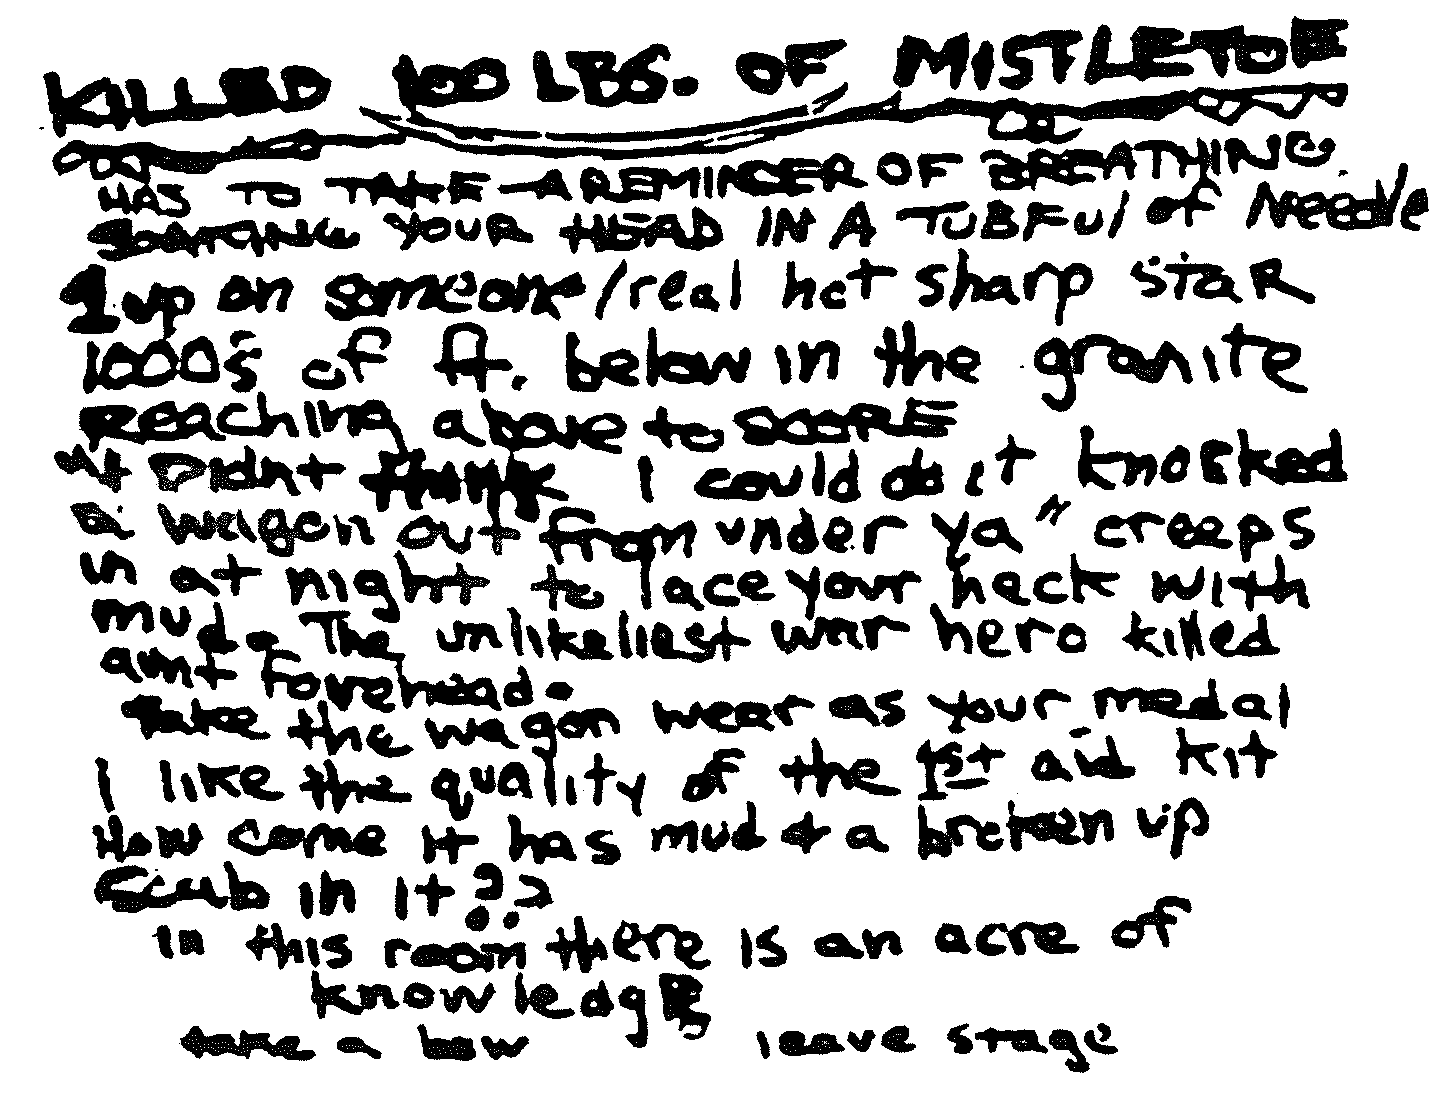 KILLED 100 LBS. OF MISTLETOE
HAS TO TAKE A REMINDER OF BREATHING
YOUR HEAD IN A TUBFul of Needle
up on someone/real hot sharp staR
1000s of ft. below in the granite
Reaching above to SCORE
Didnt think I could do it knocked
a wagon out from under ya" creeps
in at night to lace your neck with
mud. The unlikeliest war hero killed
aunt Forehead.
take the wagon wear as your medal
I like the quality of the 1st aid kit
How come it has mud & a broken up
Scab in it??
in this room there is an acre of
knowledge
take a bow leave stage